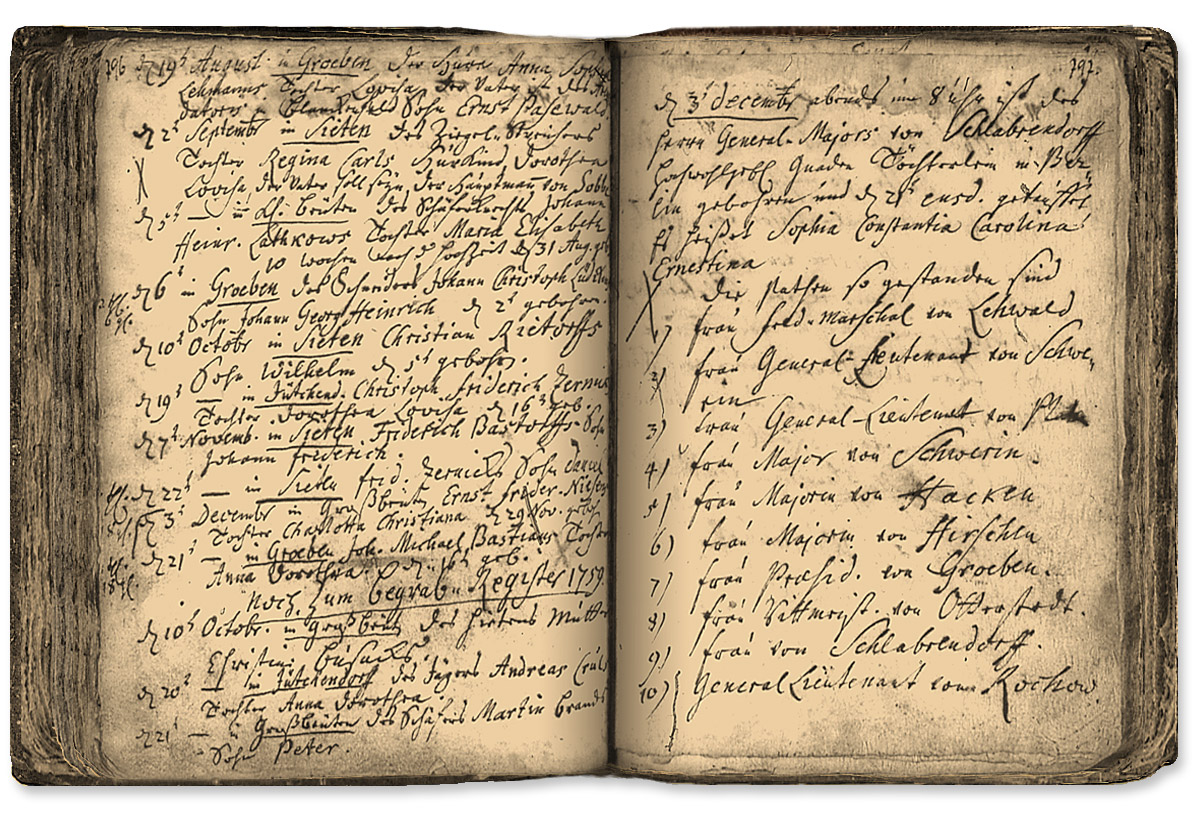 796
d 19t August in Groeben der Hure Anna Sophia
Lehmanns Tochter Lovisa der Vater ist des
Blanckenfeld Sohn Ernst Pasewald
d 2t Septembr in Sieten des Ziegel-Streichers
Tochter Regina Carls HurKind, Dorothea
Lovisa, der Vater soll seyn, der Hauptmann von
d 5t — in Kl. Beuten des Schäferknechts Johann
Heinr. Tochter Maria Elisabeth
10 Wochen nach d Hochzeit d 31 Aug. geb
d 6 in Groeben des Schneiders Johann Christoph
Sohn Johann Georg Heinrich d 2t gebohren.
d 10t Octobr in Sieten Christian Rietdorffs
Sohn Wilhelm d 5t gebohr.
d 19t — in Jütchend. Christoph Friderich
Tochter Dorothea Lovisa d 16t geb.
d 7t Novemb. in Sieten Friderich Bastorffs Sohn
Johann Friderich.
d 22t — in Sieten Frid. Zernicks Sohn Daniel
d 3t Decembr in Großbeuten Ernst Frider.
Tochter Charlotta Christiana d 29 Nov. gebohr
d 21t — in Groeben Joh. Michael Bastians Tochter
Anna Dorothea. d 16t geb.
Noch zum begrab. Register 1759
d 10t Octobr. in Großbeut des Hirtens Mutter
Christina
d 20t — in Jütchendorf des Jägers Andreas
Tochter Anna Dorothea.
d 21t — Großbeuten des Schäfers Martin Brands
Sohn Peter.
797.
d 3t Decembr abends um 8 Uhr ist des
Herrn General-Majors von Schlabrendorff
Hochwohlgebl Gnaden Töchterlein in Ber-
lin gebohren und d 28t eusd. getaufft
Es heißet Sophia Constantia Carolina
Ernestina
Die Pathen so gestanden sind
1) Frau Feld-Marschal von Lehwald
2) Frau General-Lieutenant von Schwe-
rin
3) Frau General-Lieutenat von
4) Frau Major von Schwerin.
5) Frau Majorin von Hacken
6) Frau Majorin von
7) Frau Præsid. von Groeben.
8) Frau Rittmeist. von Otterstedt.
9) Frau von Schlabrendorff.
10) General Lieutenant von Rochow